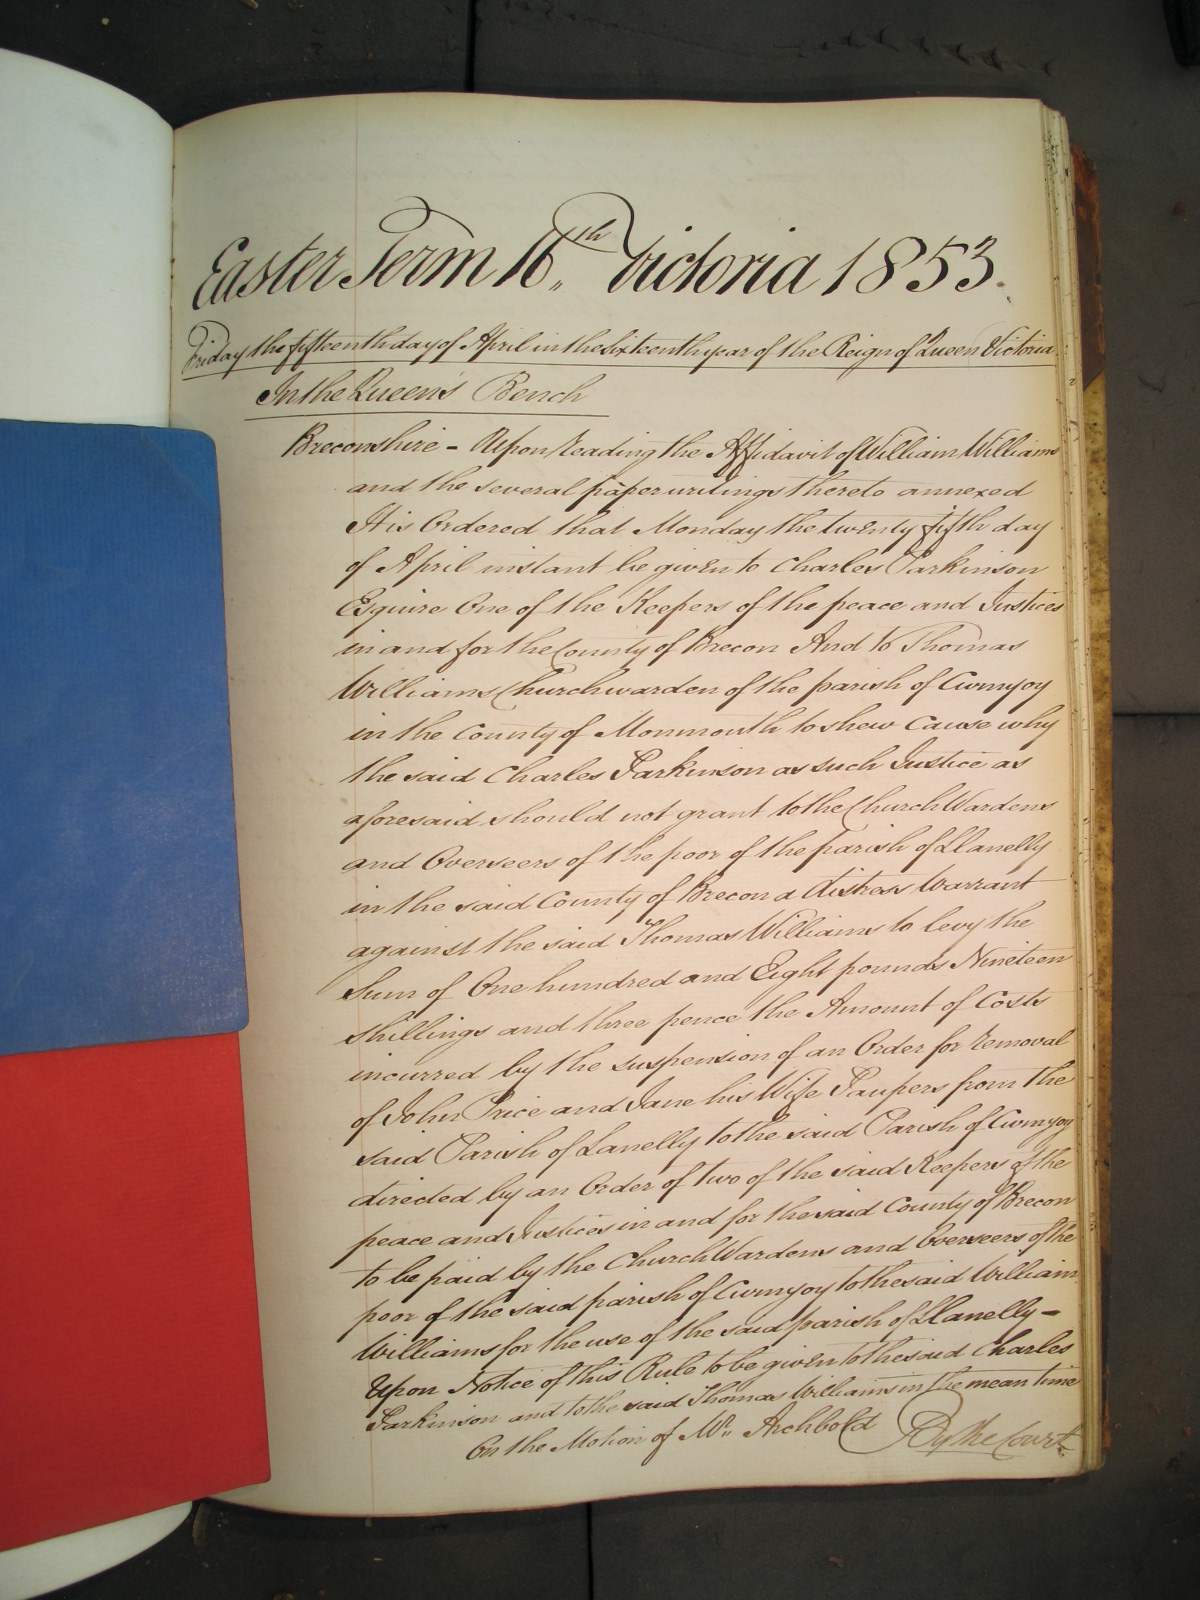 Easter Term 16th Victoria 1853.
Friday the fifteenth day of April in the Sixteenth year of the Reign of Queen Victoria
In the Queen's Bench
Breconshire - Upon reading the Affidavit of William Williams
and the several paper writings thereto annexed
It is Ordered that Monday the twenty fifth day
of April instant be given to Charles Parkinson
Esquire One of the Keepers of the peace and Justices
in and for the County of Brecon And to Thomas
Williams Churchwarden of the parish of Cwmyoy
in the County of Monmouth to shew Cause why
the said Charles Parkinson as such Justice as
aforesaid should not grant to the Church Wardens
and Overseers of the poor of the parish of Llanelly
in the said County of Brecon a distress Warrant
against the said Thomas Williams to levy the
Sum of One hundred and Eight pounds Nineteen
shillings and three pence the Amount of Costs
incurred by the suspension of an Order for removal
of John Price and Jane his Wife Paupers from the
said Parish of Lanelly to the said Parish of Cwmyoy
directed by an Order of two of the said Keepers of the
peace and Justices in and for the said County of Brecon
to be paid by the Church Wardens and Overseers of the
poor of the said parish of Cwmyoy to the said William
Williams for the use of the said parish of Llanelly -
Upon Notice of this Rule to be given to the said Charles
Parkinson and to the said Thomas Williams in the mean time
On the Motion of Mr. Archbold By the Court